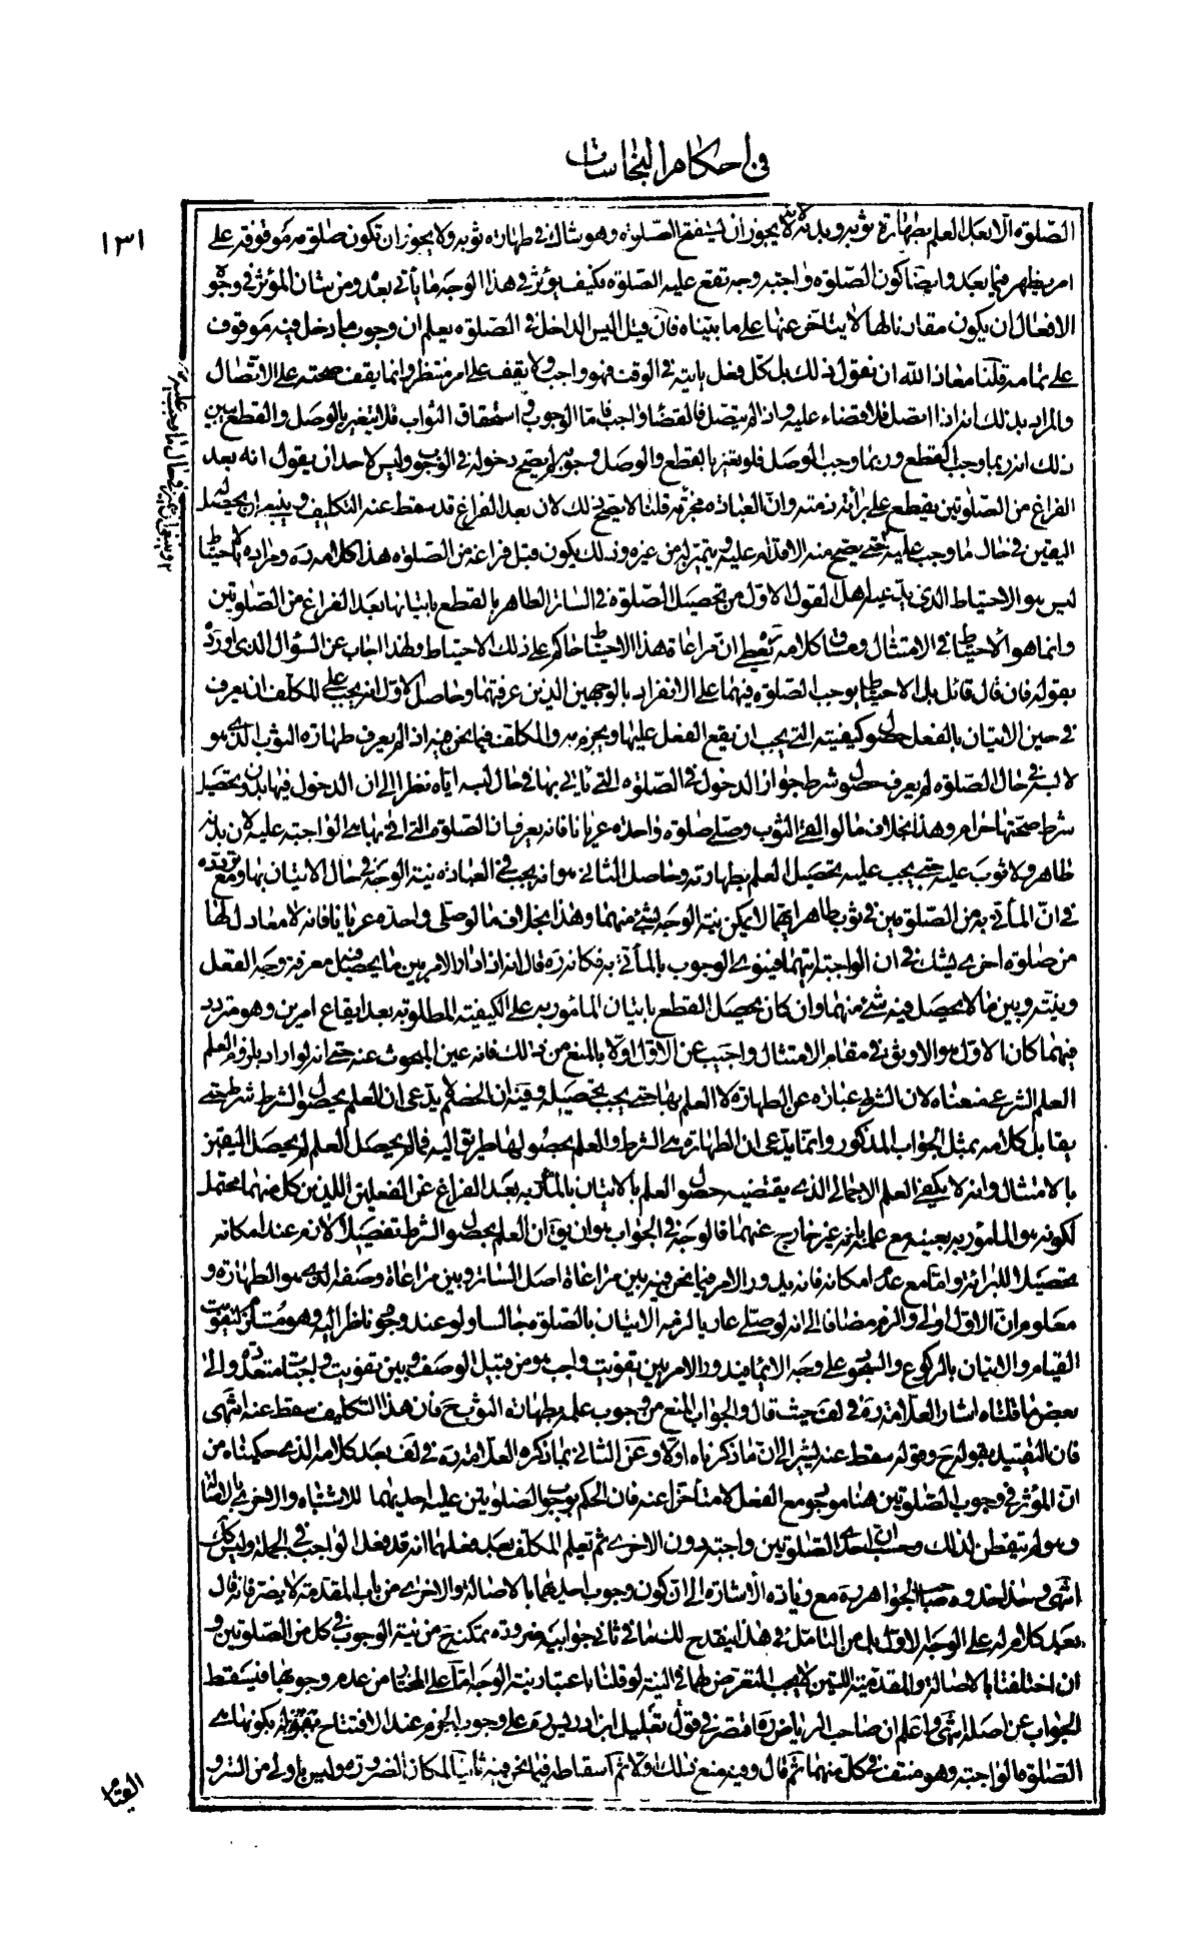 في احكام النجاسات
١٣١
الصّلوة الّا بعد العلم بطهارة ثوبه وبدنه لانّه لا يجوز ان يستفتح الصّلوة وهو شاكّ في طهارة ثوبه ولا يجوز ان تكون صلوته موقوفة على
امر يظهر فيما بعد وايضا كون الصّلوة واجبة وجه تقع عليه الصّلوة فكيف يؤثر في هذا الوجه ما يأتي بعده ومن شان المؤثر في وجوه
الافعال ان يكون مقارنا لها لا يتاخّر عنها على ما بيّناه فان قيل اليس الداخل في الصّلوة يعلم ان وجوب ما دخل فيه موقوف
على تمامه قلنا معاذ اللّه ان نقول ذلك بل كلّ فعل ياتيه في الوقت فهو واجب ولا يقف على امر منتظر وانما يقف صحته على الاتّصال
والمراد بذلك انه اذا اتصل فلا قضاء عليه واذا لم يتصل فالقضاء واجب فامّا الوجوب و استحقاق الثواب فلا يتغير بالوصل والقطع يبين
ذلك انه ربما وجب القطع وربما وجب الوصل فلو تغير بالقطع والوصل وجوبه لم يصح دخوله في الوجوب وليس لاحد ان يقول انه بعد
الفراغ من الصّلوتين يقطع على برائة ذمته وانّ العبادة مجزية قلنا لا يصحّ ذلك لان بعد الفراغ قد سقط عنه التكليف وينبغي ان يحصل له
اليقين في حال ما وجب عليه حتى يصح منه الاقدام عليه ويتميّز له من غيره وذلك يكون قبل فراغه من الصّلوة هذا كلامه ره ومراده بالاحتياط
ليس هو الاحتياط الذي يدّعيه اهل القول الاوّل من تحصيل الصّلوة في الساتر الطاهر بالقطع باتيانها بعد الفراغ من الصّلوتين
وانما هو الاحتياط في الامتثال ومساق كلامه يعطي انّ مراعاة هذا الاحتياط حاكم على ذلك الاحتياط ولهذا اجاب عن السّؤال الذي اورده
بقوله فان قال قائل بل الاحتياط يوجب الصّلوة فيهما على الانفراد بالوجهين الذين عرفتهما وحاصل الاوّل انه يجب على المكلّف ان يعرف
في حين الاتيان بالفعل حصول كيفيته التي يجب ان يقع الفعل عليها ويجزم به والمكلّف فيما نحن فيه اذا لم يعرف طهارة الثوب الّذي هو
لابسه في حال الصّلوة لم يعرف حصول شرط جواز الدخول في الصّلوة التي ياتي بها في حال لبسه اياه نظرا الى ان الدخول فيها بدون تحصيل
شرط صحتها حرام وهذا بخلاف ما لو القى الثوب وصلّى صلوة واحدة عريانا فانه يعرف ان الصّلوة التي اتى بها هي الواجبة عليه لان بدنه
طاهر ولا ثوب عليه حتى يجب عليه تحصيل العلم بطهارته وحاصل الثاني هو انه يجب في العبادة نية الوجه في حال الاتيان بها ومع تردّده
في انّ المأتي به من الصّلوتين في ثوب طاهر ايّهما لا يمكن نيّة الوجه لشئ منهما وهذا بخلاف ما لو صلّى واحدة عريانا فانه لا معادل لها
من صلوة اخرى يشكّ في ان الواجبة ايّتهما فينوي الوجوب بالمأتي به فكانه ره قال انه اذا دار الامر بين ما يحصل فيه معرفة وجه الفعل
ونيّته وبين ما لا يحصل فيه شئ منهما وان كان يحصل القطع باتيان المأمور به على الكيفيّة المطلوبة بعد ايقاع امرين وهو متردد
فيهما كان الاوّل هو الاوثق في مقام الامتثال واجيب عن الاوّل اولا بالمنع من ذلك فانه عين المبحوث عنه حتى انه لو اراد بلزوم العلم
العلم الشرعي منعناه لان الشرط عبارة عن الطهارة لا العلم بها حتى يجب تحصيله وفيه ان الخصم لا يدّعى ان العلم بحصول الشرط شرط حتى
يقابل كلامه بمثل الجواب المذكور وانّما يدّعى ان الطهارة هي الشرط والعلم بحصولها طريق اليه فما لم يحصل العلم لم يحصل اليقين
بالامتثال وانه لا يكفي العلم الاجمالي الذي يقتضيه حصول العلم بالاتيان بالمأتي به بعد الفراغ عن الفعلين اللذين كلّ منهما محتمل
لكونه هو المأمور به بعينه مع علمه بانه غير خارج عنهما فالوجه في الجواب هو ان يق ان العلم بحصول الشرط تفصيلا لانه عند امكانه
تحصيلا للبرائة وامّا مع عدم امكانه فانه يدور الامر فيما نحن فيه بين مراعاة اصل الساتر وبين مراعاة وصفه الذي هو الطهارة و
معلوم انّ الاوّل اولى والزم مضافا الى انه لو صلّى عاريا لزمه الاتيان بالصّلوة جالسا ولو عند وجود ناظر اليه وهو مستلزم لتفويت
القيام والاتيان بالركوع والسّجود على وجه الايماء فيدور الامر بين تفويت واجب هو من قبيل الوصف وبين تفويت واجبات متعدّدة والى
بعض ما قلناه اشار العلّامة ره في لف حيث قال والجواب المنع من وجوب علمه بطهارة الثوب ح فان هذا التكليف سقط عنه انتهى
فان التقييد بقوله ح وقوله سقط عنه يشير الى انّ ما ذكرناه اولا وعن الثاني بما ذكره العلّامة ره في لف بعد كلامه الذي حكيناه من
انّ المؤثر في وجوب الصّلوتين هنا موجود مع الفعل لا متأخّر عنه فان الحكم بوجوب الصّلوتين عليه احديهما للاشتباه والاخرى بالاصالة
وهو لم يتفطن لذلك وحسب ان احدى الصّلوتين واجبة دون الاخرى ثم تعليم المكلّف بعد فعلهما انه قد فعل الواجب في الجملة وليس كك
انتهى وحذا حذوه صاحب الجواهر ره مع زيادة الاشارة الى ان كون وجوب احديهما بالاصالة والاخرى من باب المقدمة لا يضر فانه قال
بعد كلام له على الوجه الاوّل بل من التامّل في هذا ينقدح لك ما في ثاني جوابيه ضرورة تمكنه ح من نية الوجوب في كل من الصّلوتين و
ان اختلفتا بالاصالة والمقدميّة اللتين لا يجب التعرض لهما في النية لو قلنا باعتبار نية الوجه امّا على المختار من عدم وجوبها فيسقط
الجواب عن اصله انتهى واعلم ان صاحب الرياض ره اقتصر في نقل تعليل ابن ادريس ره على وجوب الجزم عند الافتتاح بكونها هي
الصّلوة الواجبة وهو منتف في كلّ منهما ثم قال وفيه منع ذلك اوّلا ثم اسقاطه فيما نحن فيه ثانيا لمكان الضرورة وليس باولى من الشروط